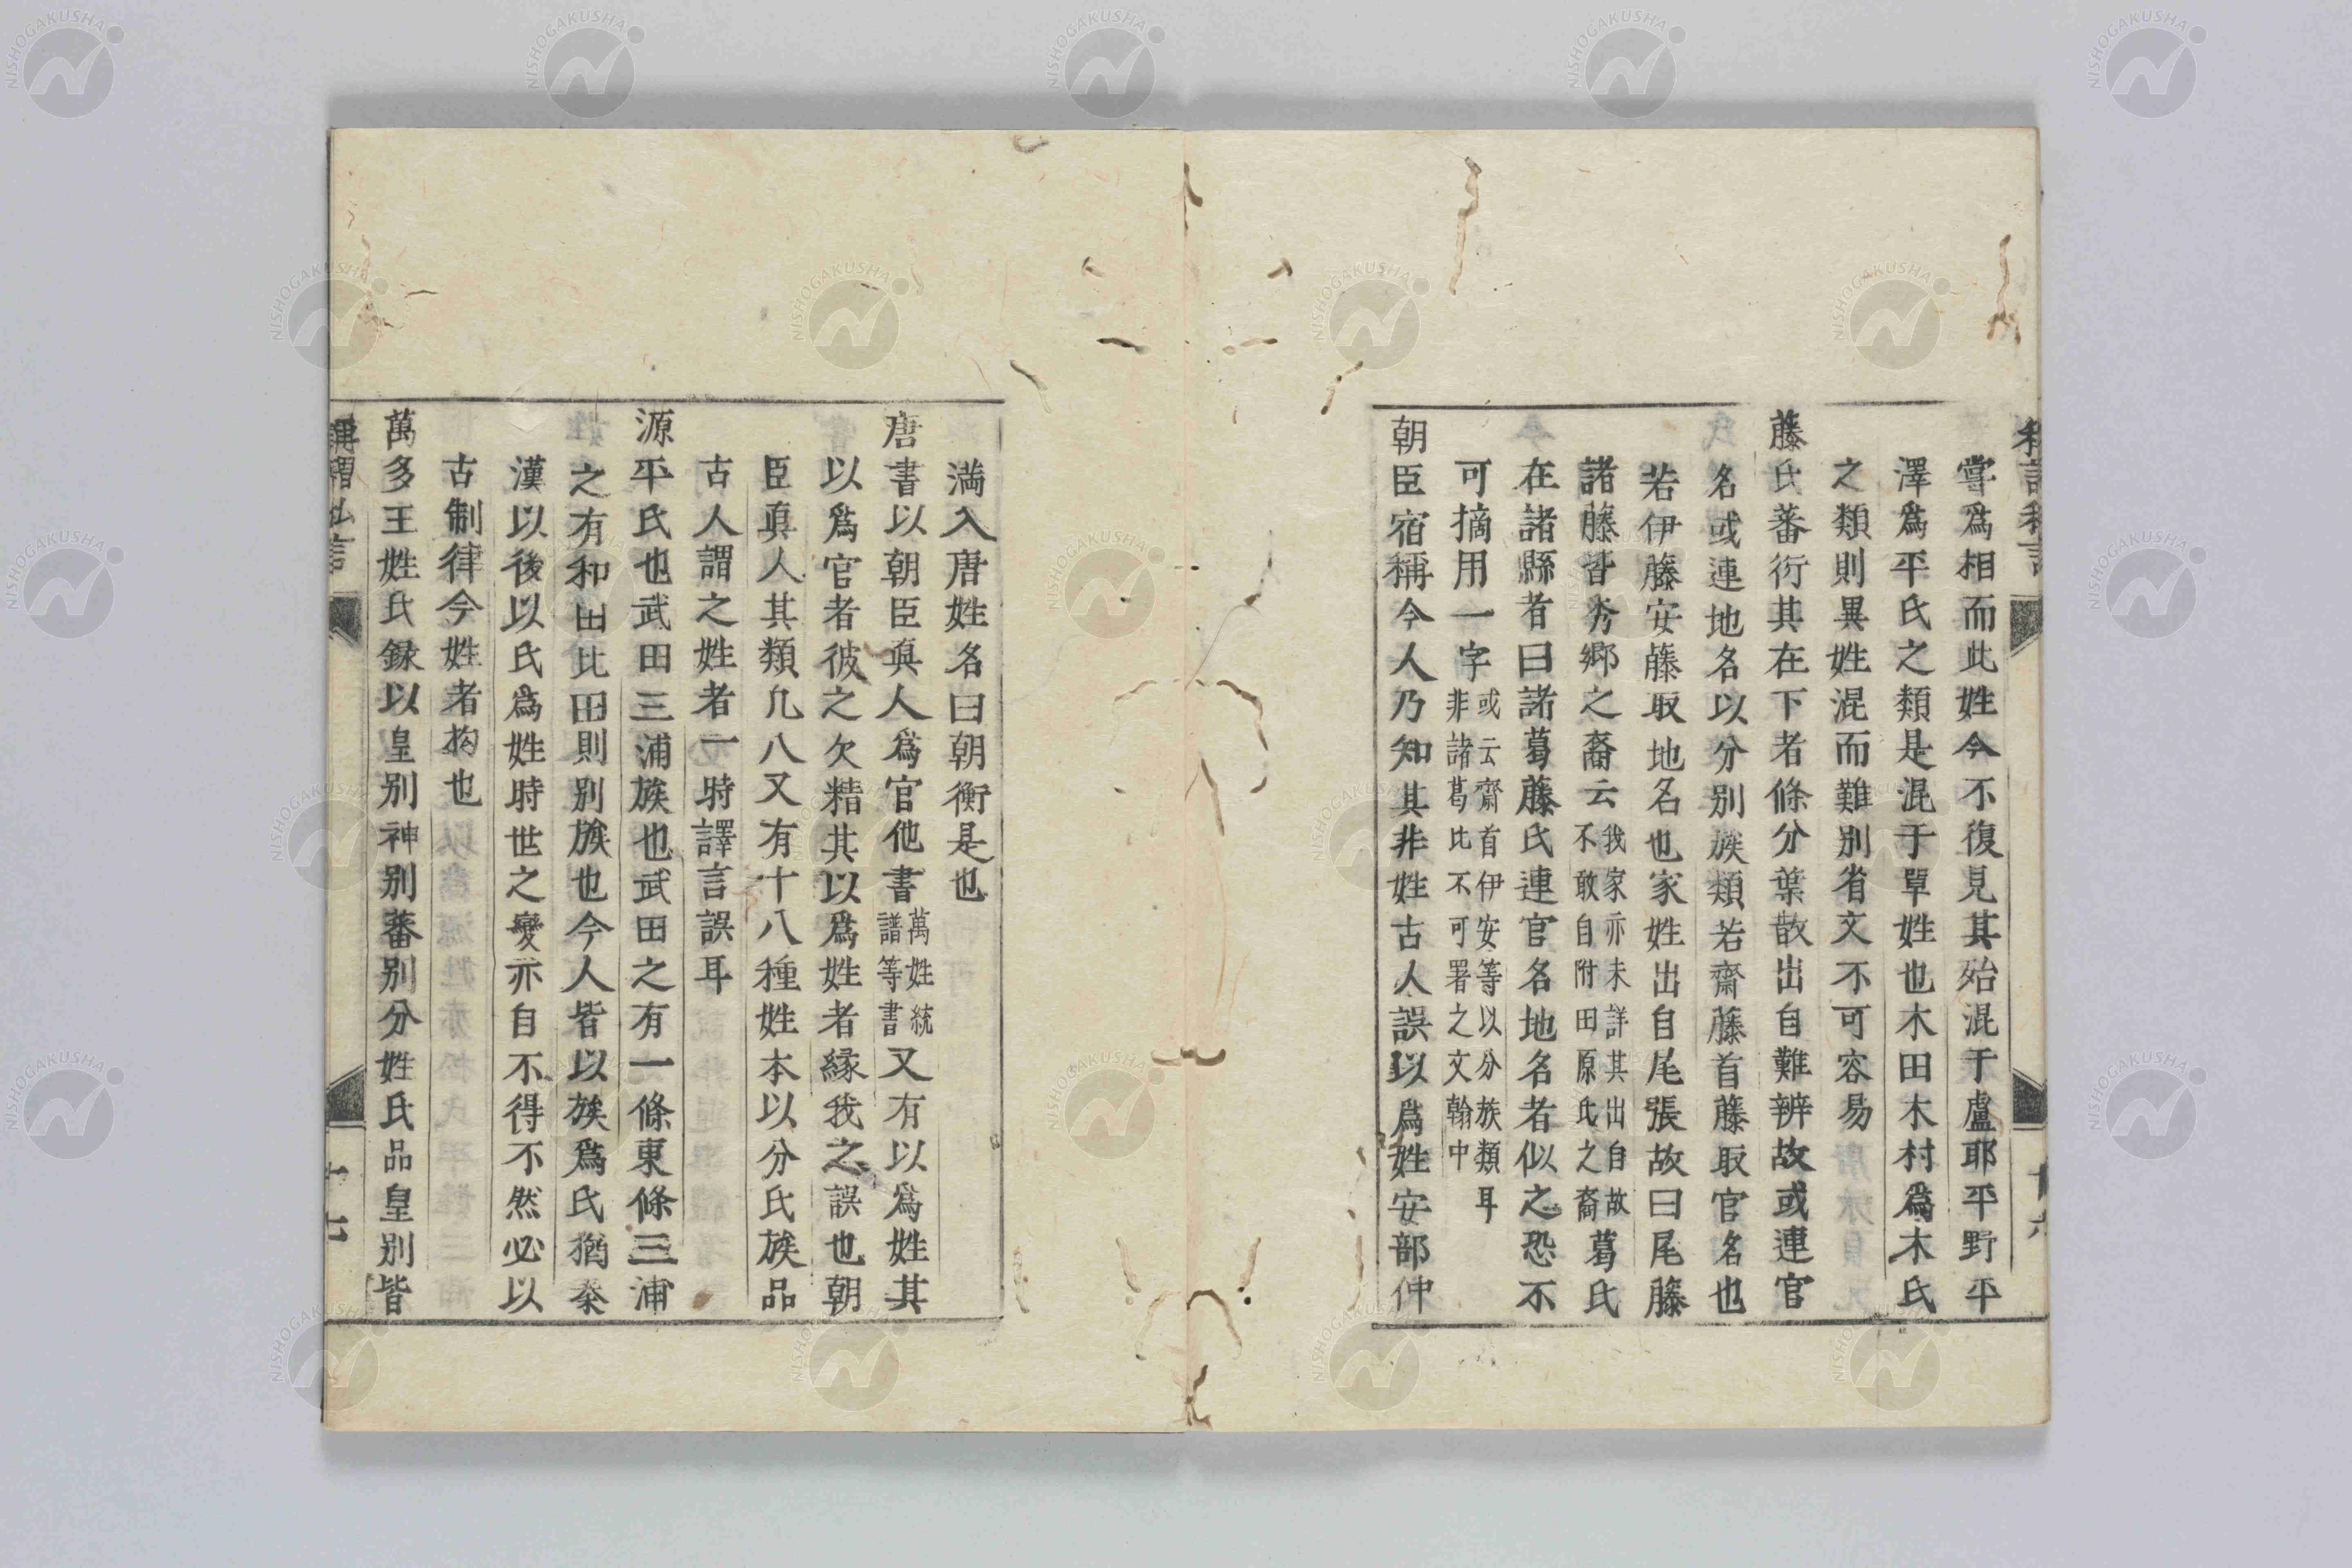 嘗爲相而此姓今不復見其殆混于盧耶平野平
澤爲平氏之類是混于單姓也木田木村爲木氏
之類則異姓混而難別省文不可容易
藤氏蕃衍其在下者條分葉散出自難辨故或連官
名或連地名以分別族類若齋藤首藤取官名也
若伊藤安藤取地名也家姓出自尾張故曰尾藤
諸藤皆秀郷之裔云我家亦未詳其出自故不敢自附田原氏之裔葛氏
在諸縣者曰諸葛藤氏連官名地名者似之恐不
可摘用一字或云齋首伊安等以分族類耳非諸葛比不可署之文翰中
朝臣宿稱今人乃知其非姓古人誤以爲姓安部仲
満入唐姓名曰朝衡是也
唐書以朝臣眞人爲官他書萬姓統譜等書又有以爲姓其
以爲官者彼之欠精其以爲姓者縁我之誤也朝
臣眞人其類九八又有十八種姓本以分氏族品
古人謂之姓者一時譯言誤耳
源平氏也武田三浦族也武田之有一條東條三浦
之有和田比田則別族也今人皆以族爲氏猶秦
漢以後以氏爲姓時世之變亦自不得不然必以
古制律今姓者拘也
萬多王姓氏録以皇別神別蕃別分姓氏品皇別皆
稱謂私言
十七